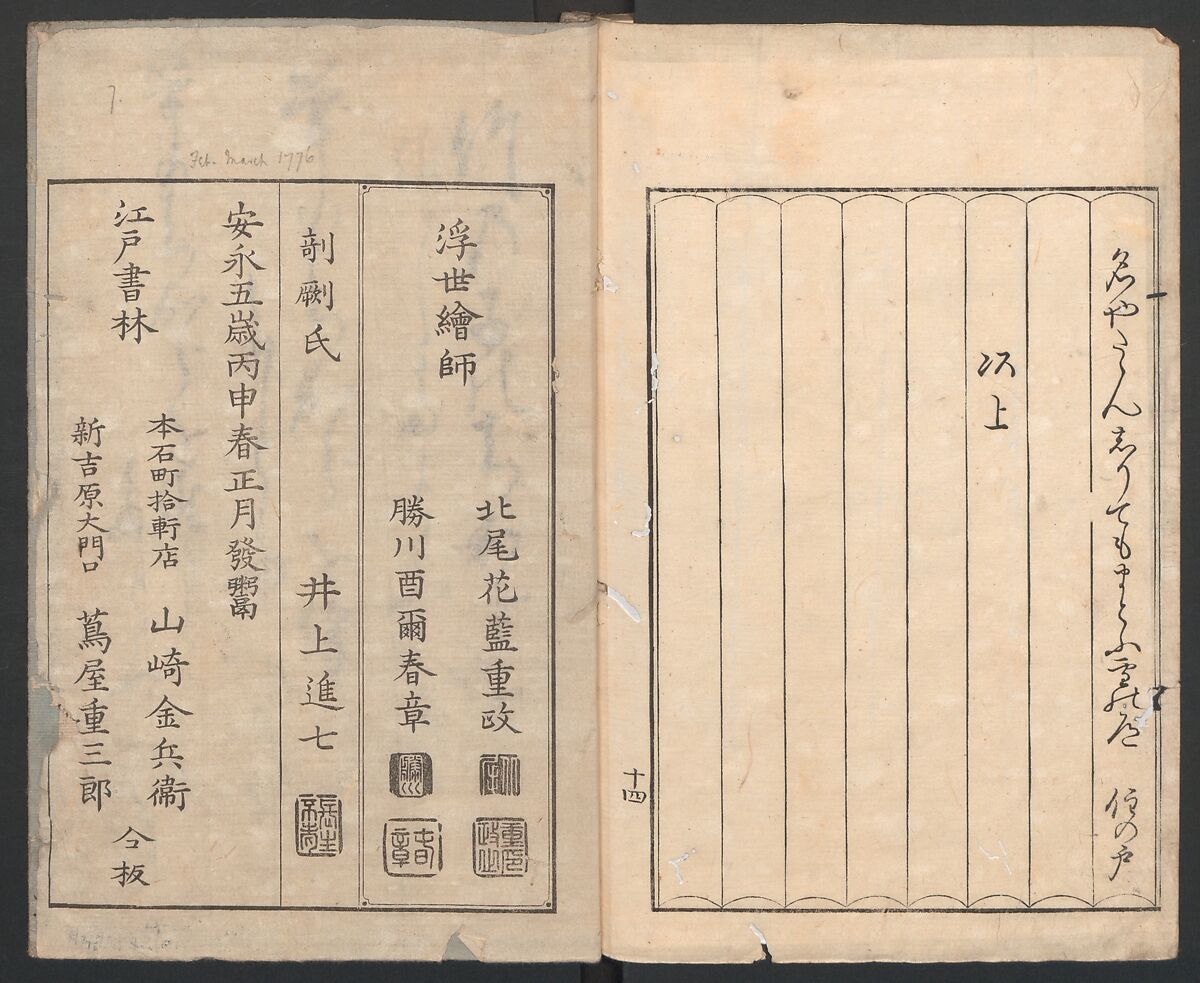 名やたん志りてもまよふ雪の道 住の戸
以上
十四
7.
Feb. March 1776
浮世繪師
北尾花藍重政
勝川酉爾春章
剞劂氏
井上進七
安永五歳丙申春正月發鬻
江戸書林
本石町拾軒店 山崎金兵衛
新吉原大門口 蔦屋重三郎
仝板